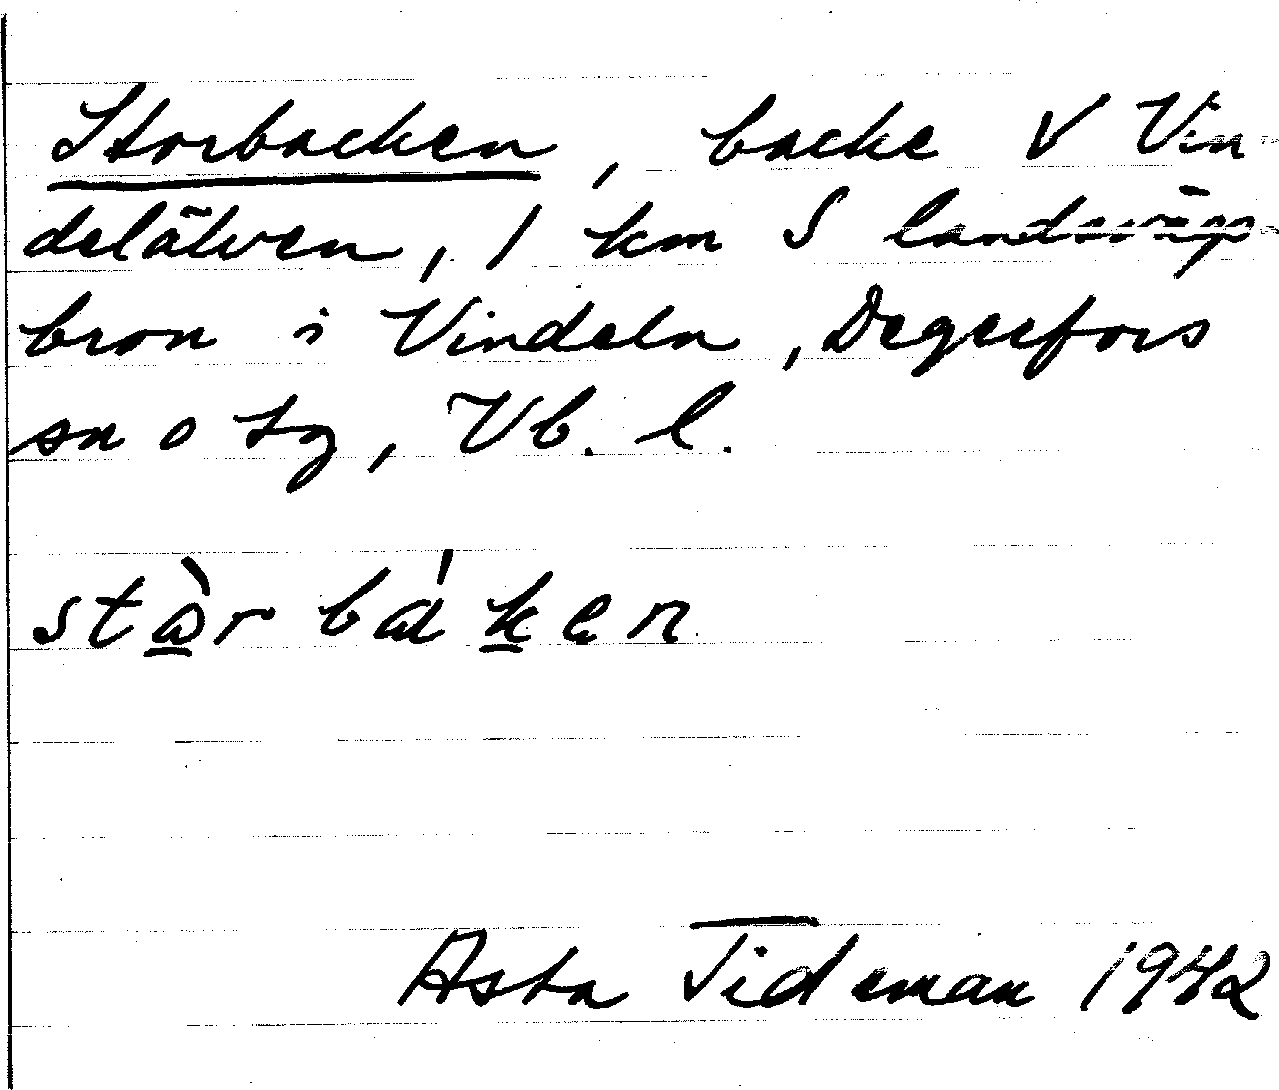 Storbacken, backe V Vin-
delälven, 1 km S landsvägs-
bron i Vindeln, Degerfors
sn o tg, Vb. l.
stàr báken
Asta Tideman 1942